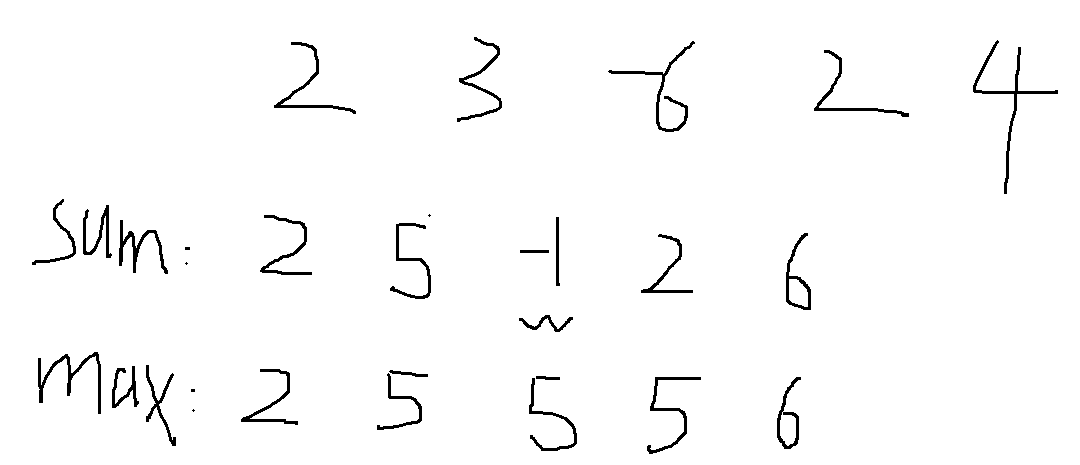 2 3 -6 2 4
sum: 2 5 -1 2 6
max: 2 5 5 5 6